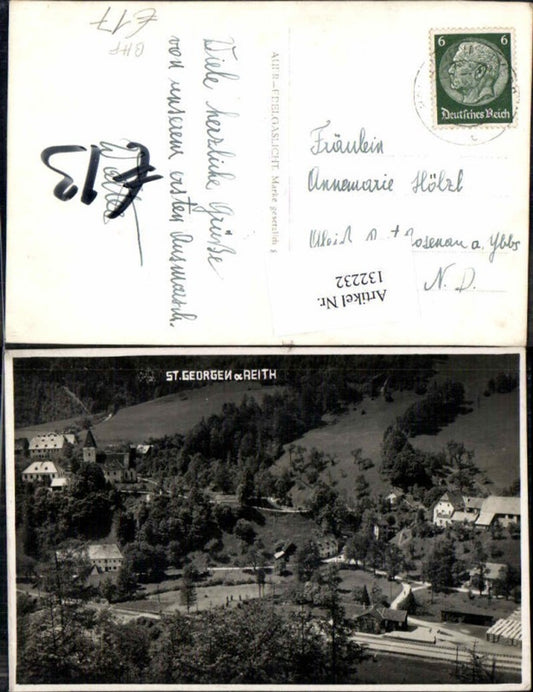 €17
BHF
Viele herzliche Grüße
von unserem ersten Ausmarsch.
AUER-EDELGASLICHT. Marke gesetzlich g
6 6
Deutsches Reich
Fräulein
Annemarie Hölzl
Rosenau a. Ybbs
N. D.
Artikel Nr.
132232
ST. GEORGEN a REITH